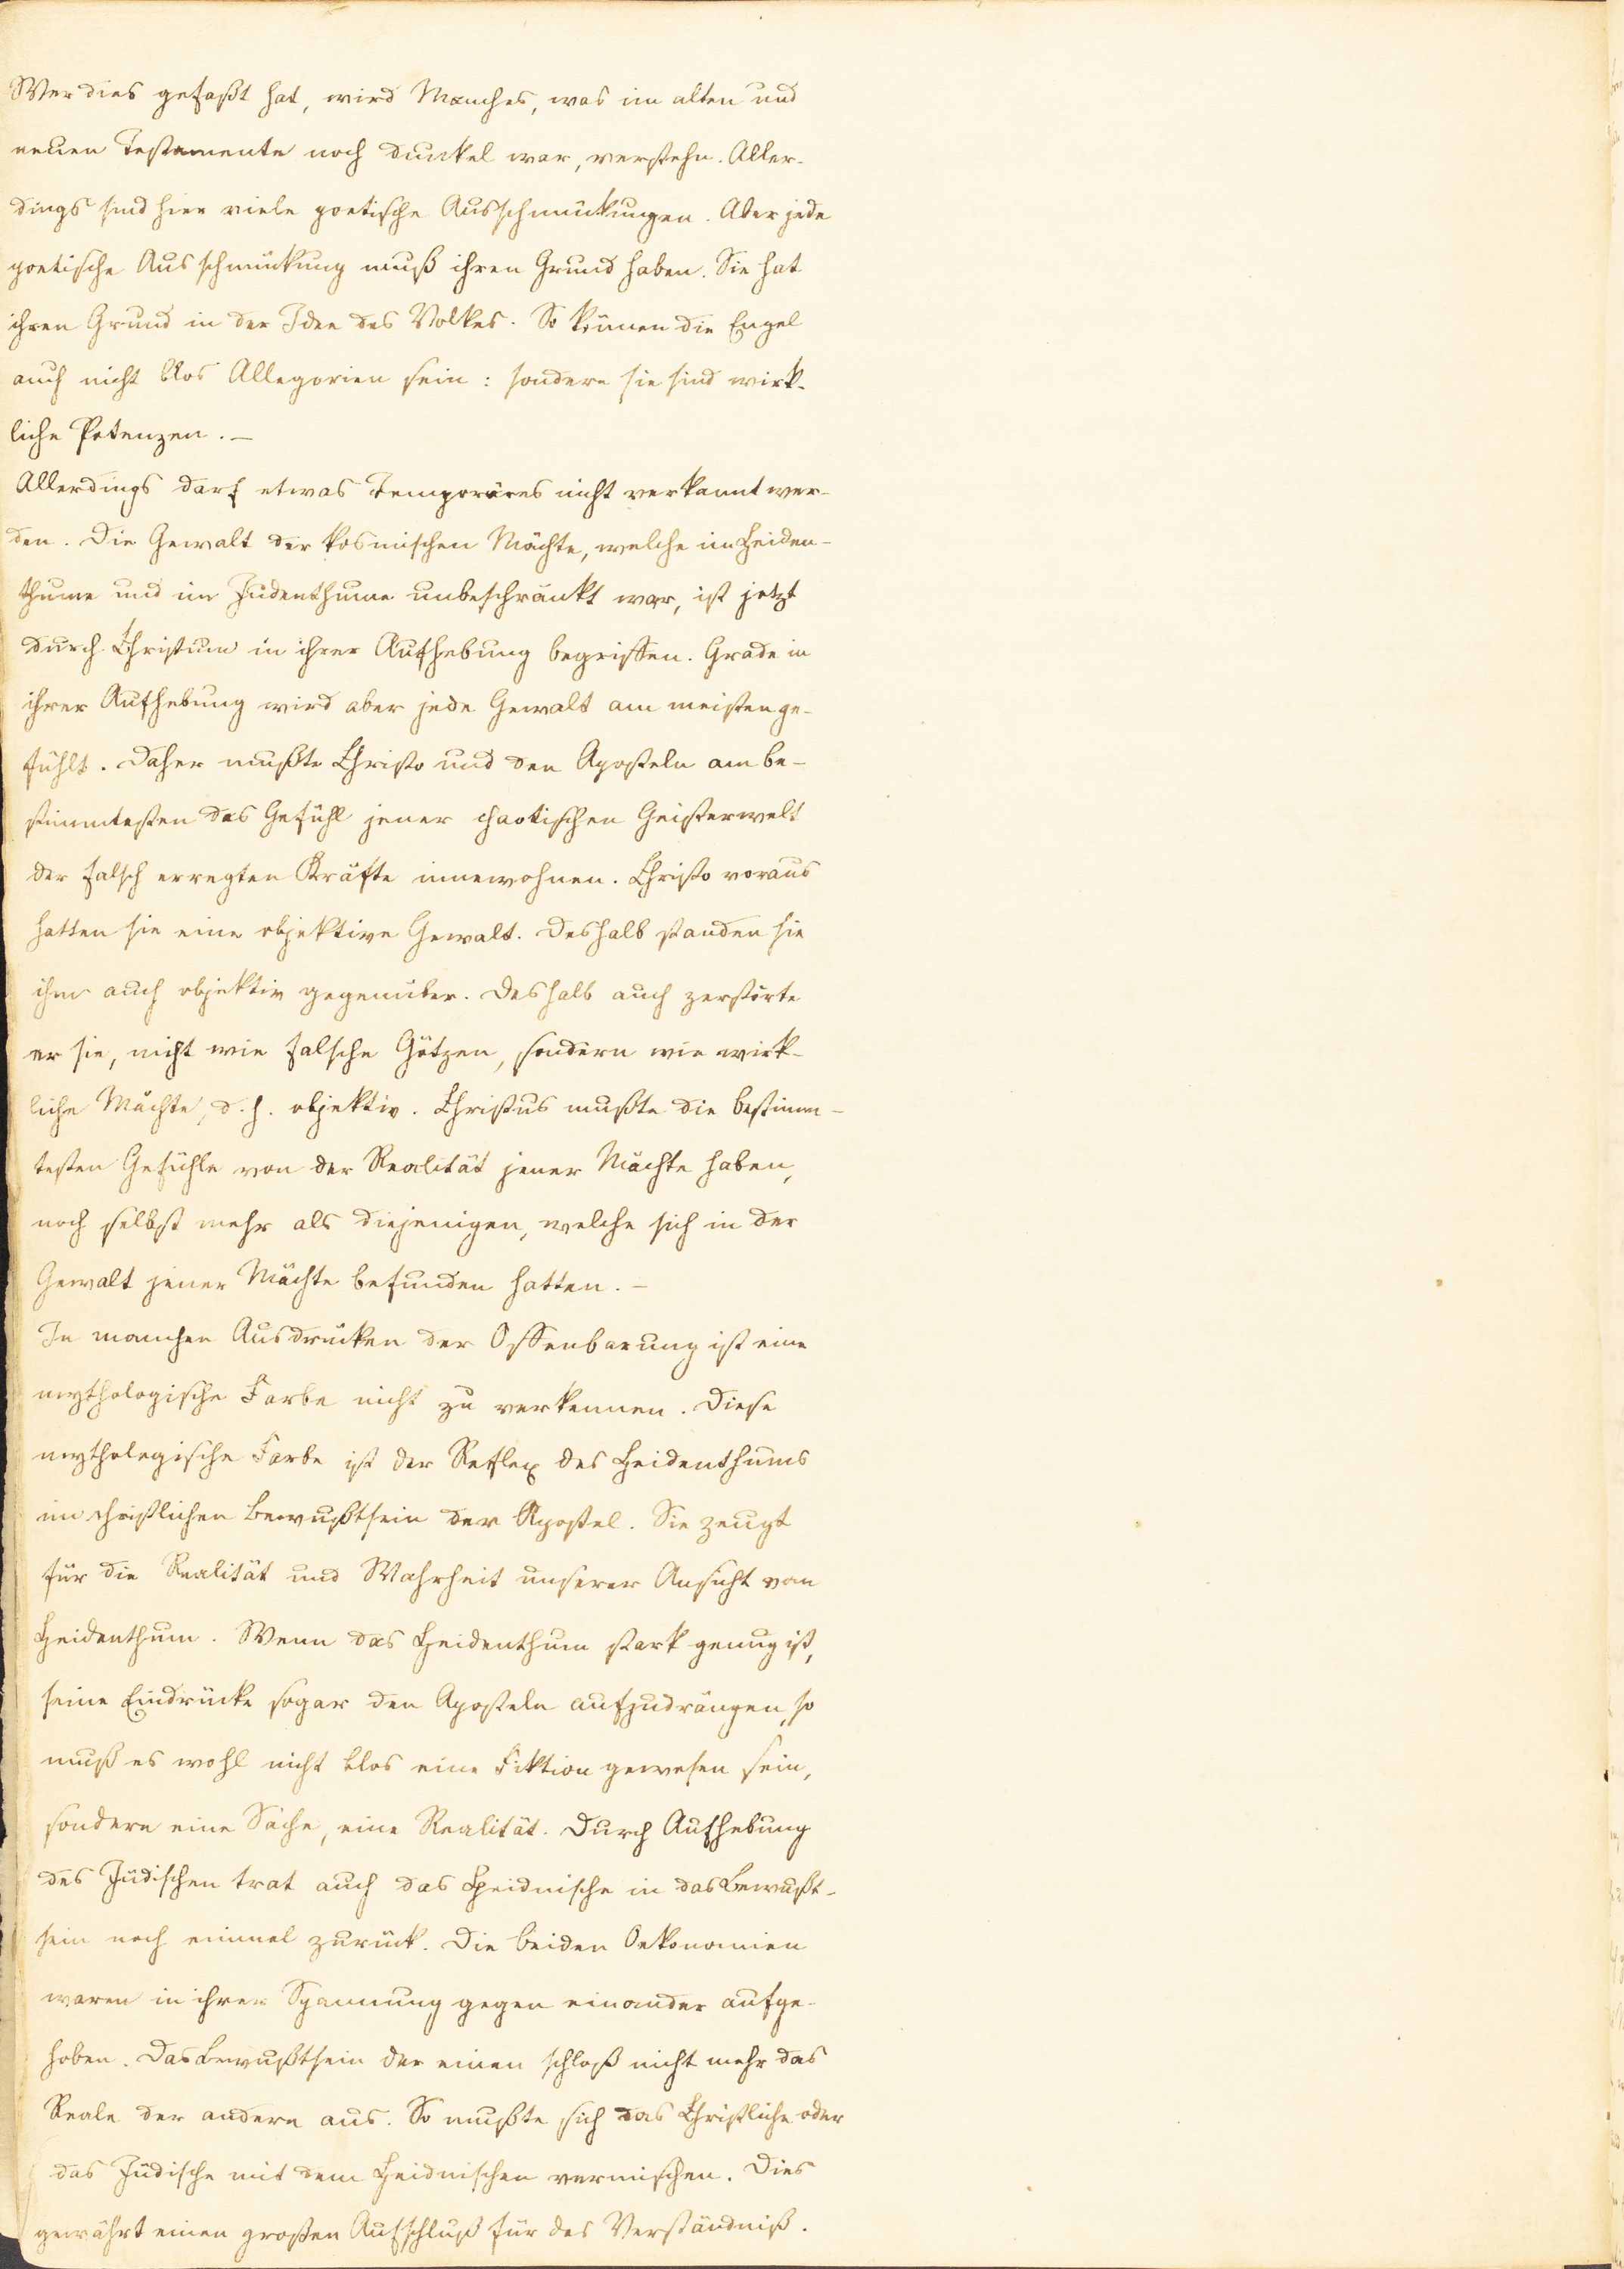 Wer dies gefaßt hat, wird Manches, was im alten und
neuen Testamente noch dunkel war, verstehn. Aller-
dings sind hier viele poetische Ausschmückungen. Aber jede
poetische Ausschmückung muß ihren Grund haben. Sie hat
ihren Grund in der Idee des Volkes. So können die Engel
auch nicht blos Allegorien sein: sondern sie sind wirk-
liche Potenzen. –
Allerdings darf etwas Temporäres nicht verkannt wer-
den. Die Gewalt der kosmischen Mächte, welche im Heiden-
thume und im Judenthume unbeschränkt war, ist jetzt
durch Christum in ihrer Aufhebung begriffen. Grade in
ihrer Aufhebung wird aber jede Gewalt am meisten ge-
fühlt. Daher mußte Christo und den Aposteln am be-
stimmtesten das Gefühl jener chaotischen Geisterwelt
der falsch erregten Kräfte innewohnen. Christo voraus
hatten sie eine objektive Gewalt. Deshalb standen sie
ihm auch objektiv gegenüber. Deshalb auch zerstörte
er sie, nicht wie falsche Götzen, sondern wie wirk-
liche Mächte, d. h. objektiv. Christus mußte die bestimm-
testen Gefühle von der Realität jener Mächte haben,
noch selbst mehr als diejenigen, welche sich in der
Gewalt jener Mächte befunden hatten. –
In manchen Ausdrücken der Offenbarung ist eine
mythologische Farbe nicht zu verkennen. Diese
mythologische Farbe ist der Reflex des Heidenthums
im christlichen Bewußtsein der Apostel. Sie zeugt
für die Realität und Wahrheit unserer Ansicht vom
Heidenthum. Wenn das Heidenthum stark genug ist,
seine Eindrücke sogar den Aposteln aufzudrängen, so
muß es wohl nicht blos eine Fiktion gewesen sein,
sondern eine Sache, eine Realität. Durch Aufhebung
des Jüdischen trat auch das Heidnische in das Bewußt-
sein noch einmal zurück. Die beiden Oekonomien
waren in ihrer Spannung gegen einander aufge-
hoben. Das Bewußtsein der einen schloß nicht mehr das
Reale der andern aus. So mußte sich das Christliche oder
das Jüdische mit dem Heidnischen vermischen. Dies
gewährt einen großen Aufschluß für das Verständniß.